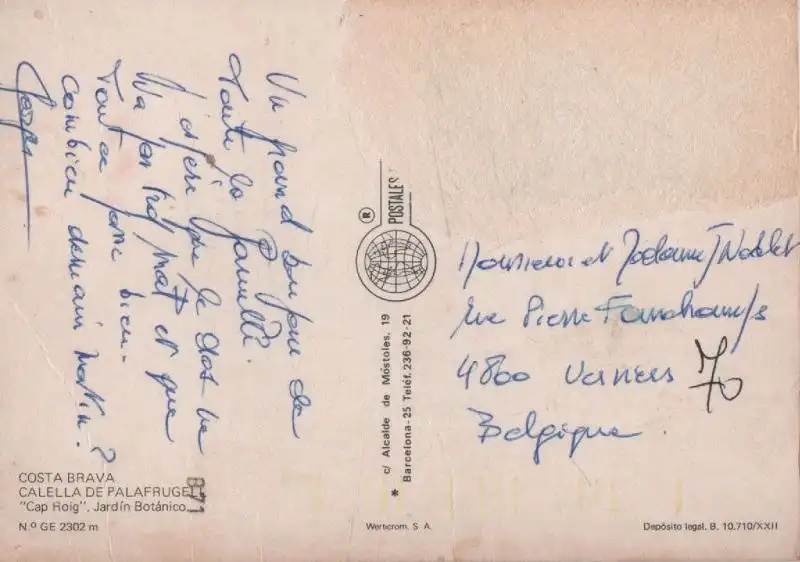 Un grand bonjour de
toute la famille.
J'espère que le
va pas trop mal et que
Tout ce passe bien.
combien demain matin ?
COSTA BRAVA
CALELLA DE PALAFRUGELL
"Cap Roig", Jardín Botánico
N.º GE 2302 m
871
POSTALES
®
* c/ Alcalde de Móstoles, 19
Barcelona-25 Teléf. 236-92-21
Werticrom, S. A.
Monsieur et Madame J
rue Pierre
4800 Verviers
70
Belgique
Depósito legal. B. 10.710/XXII